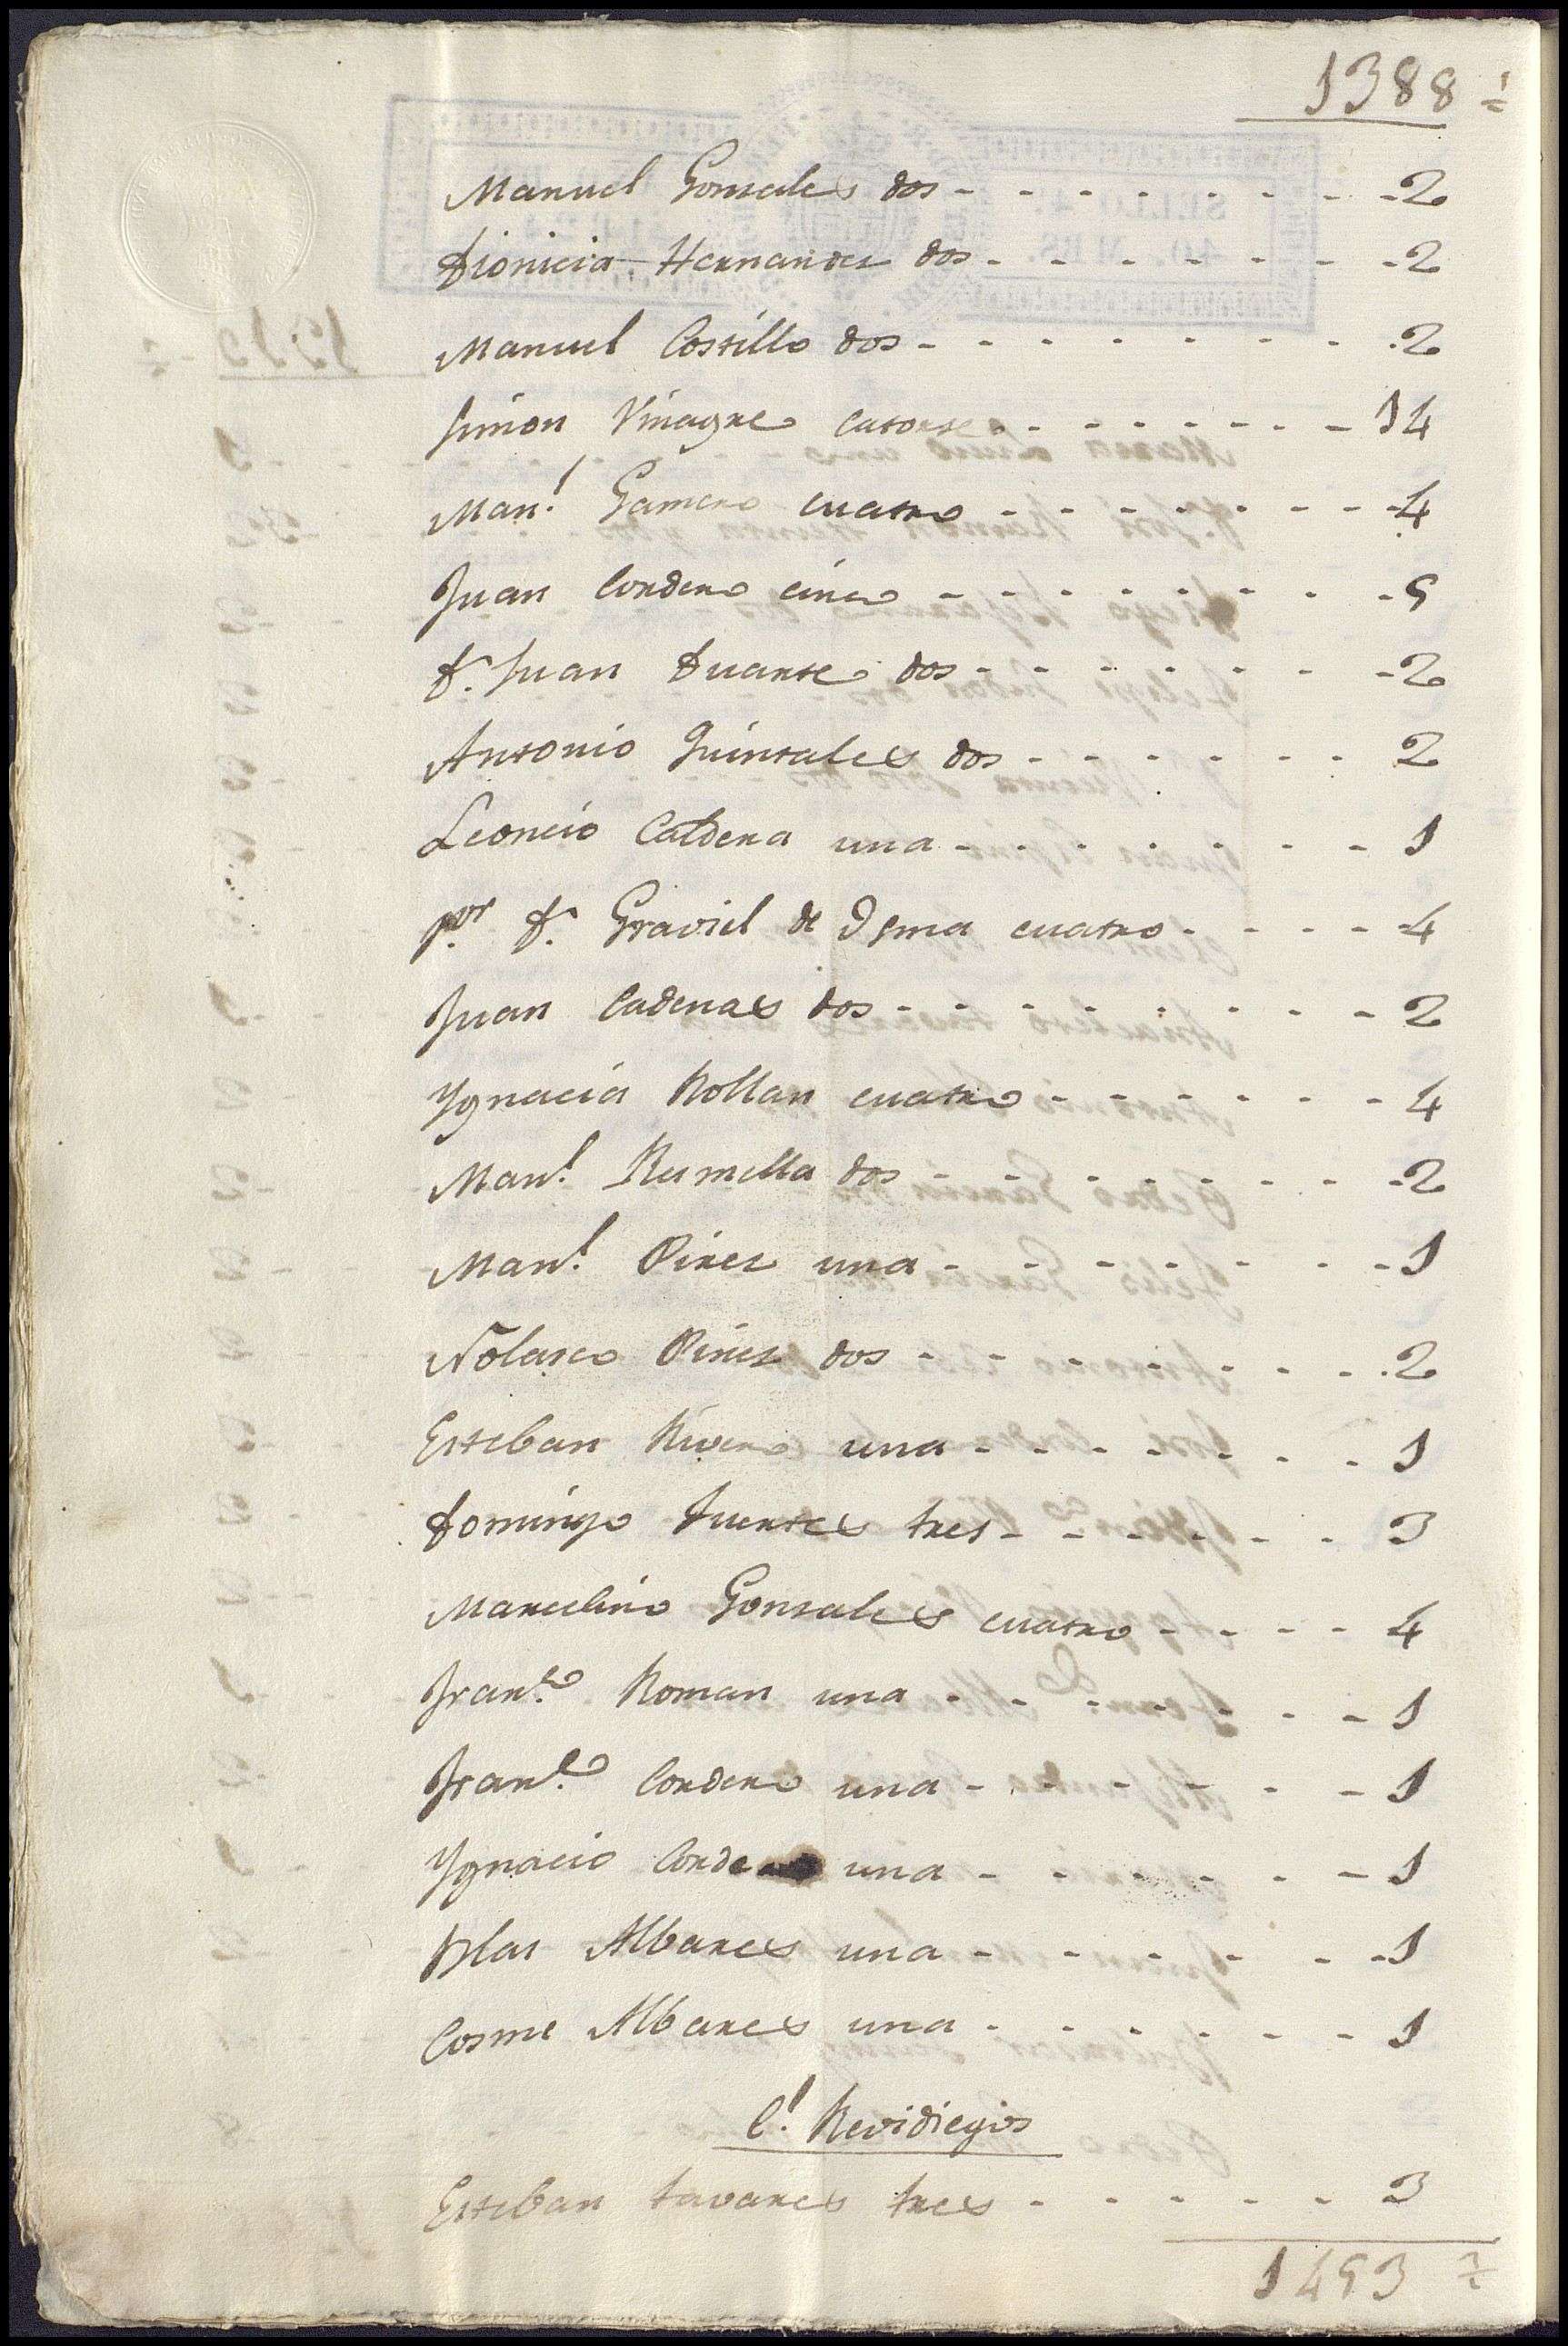 1388 ½
Manuel Gonzales dos - - - - - - - - 2
Dionicia Hernandez dos - - - - - - - 2
Manuel Costillo dos - - - - - - - - 2
Simon Vinagre catorse - - - - - - - 14
Man.l Gamero cuatro - - - - - - - - 4
Juan Cordero cinco - - - - - - - - 5
D.n Juan Duarte dos - - - - - - - 2
Antonio Quintales dos - - - - - - 2
Leoncio Caldera una - - - - - - - 1
p.or D.n Graviel de cuatro - - - - 4
Juan Cadenas dos - - - - - - - - 2
Ygnacia Rollan cuatro - - - - - - 4
Man.l Rumella dos - - - - - - - 2
Man.l Pirez una - - - - - - - - 1
Nolasco Pirez dos - - - - - - - - 2
Esteban Rivero una - - - - - - - 1
Domingo Fuentes tres - - - - - - 3
Marcelino Gonsales cuatro - - - - 4
Fran.co Roman una - - - - - - - 1
Fran.co Cordero una - - - - - - 1
Ygnacio Cordero una - - - - - - 1
Blas Albares una - - - - - - - 1
Cosme Albares una - - - - - - 1
C.l Revidiegos
Esteban tavares tres - - - - - 3
1453 ½
SELLO 4.º
40 MRS.